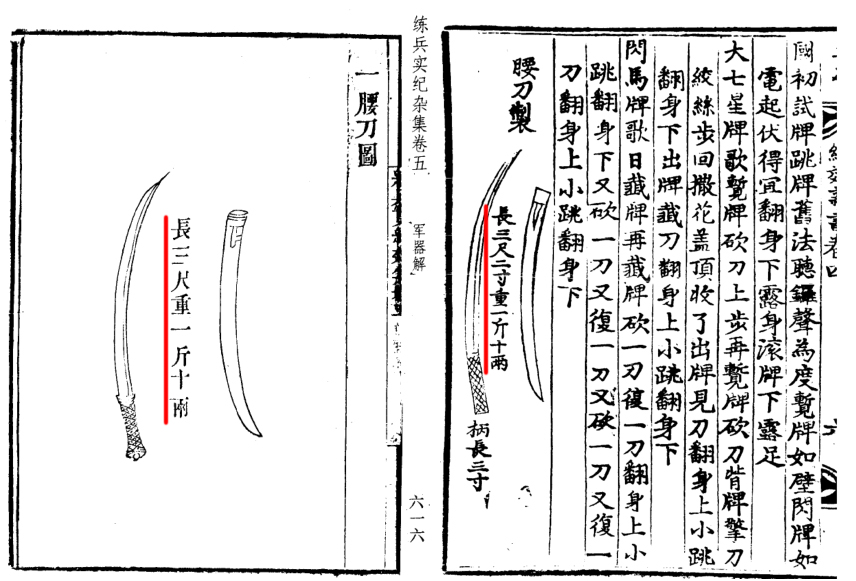 國初試牌跳牌舊法聽鑼聲為度蹔牌如壁閃牌如
電起伏得宜翻身下露身滚牌下露足
大七星牌歌蹔牌砍刀上步再蹔牌砍刀背牌擎刀
絞絲步回撒花盖頂收了出牌見刀翻身上小跳
翻身下出牌蔵刀翻身上小跳翻身下
閃馬牌歌曰蔵牌再蔵牌砍一刀復一刀翻身上小
跳翻身下又砍一刀又復一刀又砍一刀又復一
刀翻身上小跳翻身下
腰刀製
長三尺二寸重一斤十兩
柄長三寸
练兵实纪杂集卷五
军器解
六一六
一腰刀圖
長三尺重一斤十兩